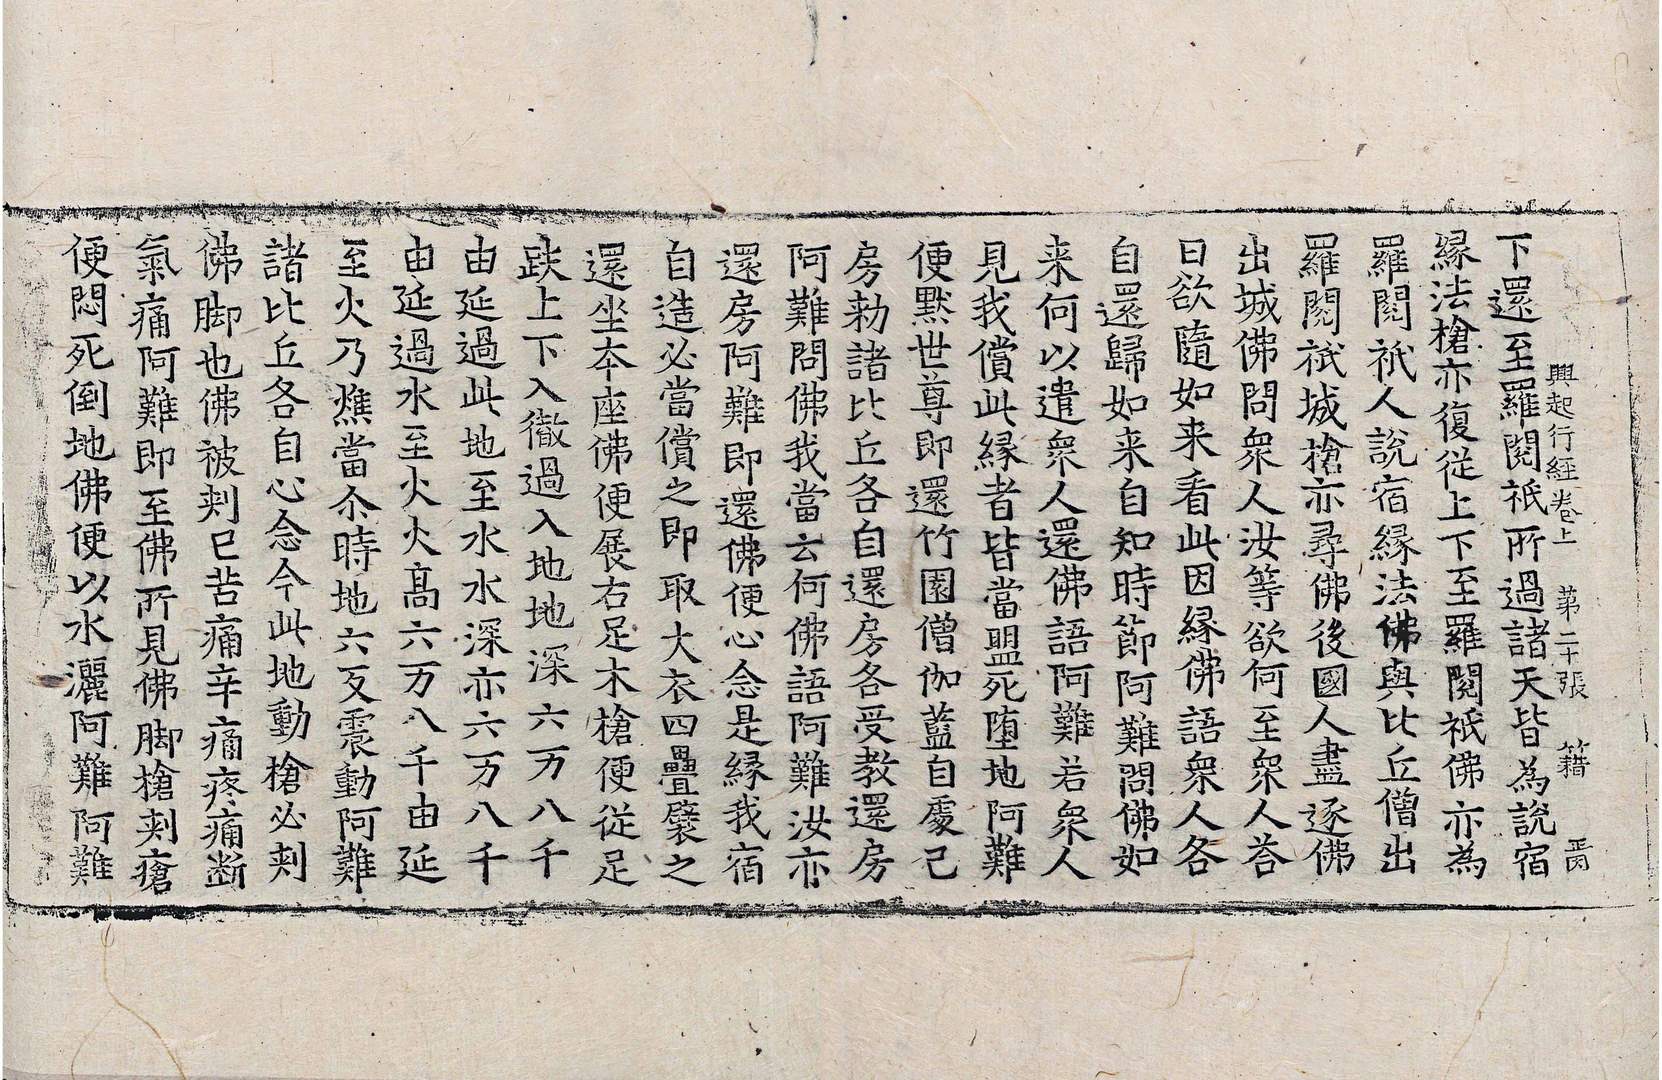 興起行經卷上　第二十張　籍
下還至羅閱祇所過諸天皆為說宿
緣法槍亦復從上下至羅閱祇佛亦為
羅閱祇人說宿緣法佛與比丘僧出
羅閱祇城槍亦尋佛後國人盡逐佛
出城佛問衆人汝等欲何至衆人荅
曰欲隨如来看此因緣佛語衆人各
自還歸如来自知時節阿難問佛如
来何以遣衆人還佛語阿難若衆人
見我償此緣者皆當盟死墮地阿難
便默世尊即還竹園僧伽藍自處己
房勑諸比丘各自還房各受教還房
阿難問佛我當云何佛語阿難汝亦
還房阿難即還佛便心念是緣我宿
自造必當償之即取大衣四疊襞之
還坐夲座佛便展右足木槍便從足
趺上下入徹過入地地深六万八千
由延過此地至水水深亦六万八千
由延過水至火火髙六万八千由延
至火乃燋當尒時地六反震動阿難
諸比丘各自心念今此地動槍必刾
佛脚也佛被刾已苦痛辛痛疼痛断
氣痛阿難即至佛所見佛脚槍刾瘡
便悶死倒地佛便以水灑阿難阿難